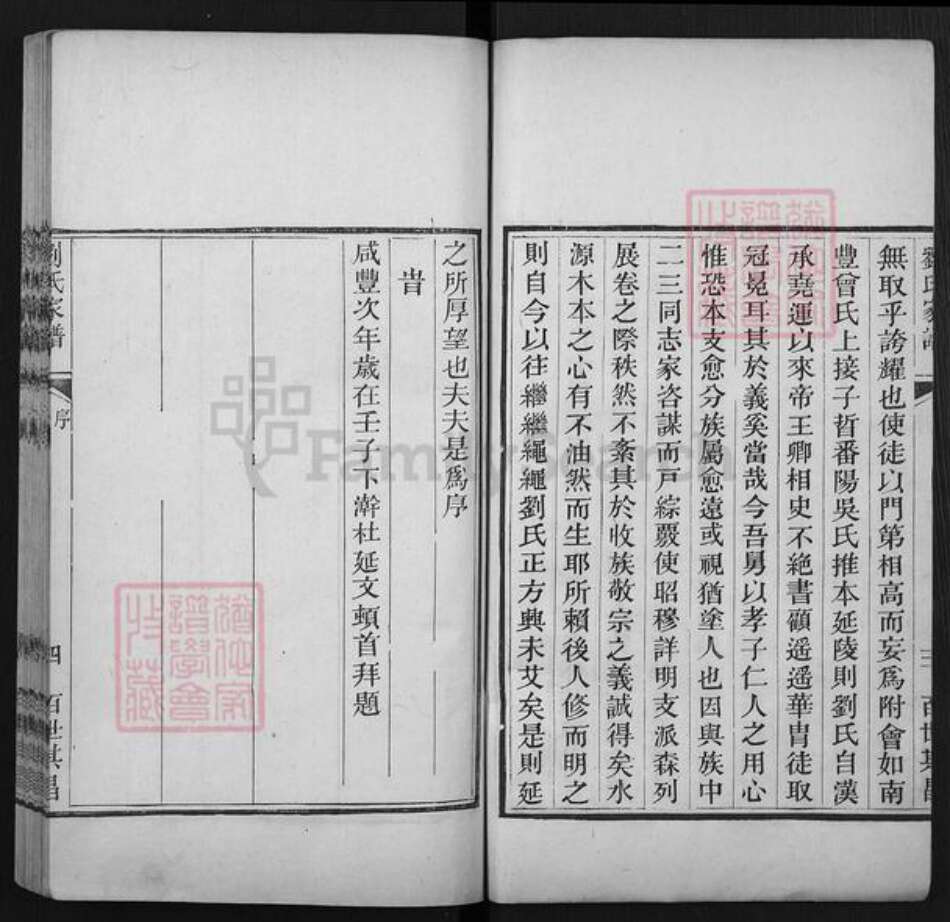 無取乎誇耀也使徒以門第相高而妄為附會如南
豐曾氏上接子晳番陽吳氏推本延陵則劉氏自漢
承堯運以來帝王卿相史不絕書顧遥遥華冑徒取
冠冕耳其於義奚當哉今吾舅以孝子仁人之用心
惟恐本支愈分族屬愈遠或視猶塗人也因與族中
二三同志家咨謀而戸綜覈使昭穆詳明支派森列
展卷之際秩然不紊其於收族敬宗之義誠得矣水
源木本之心有不油然而生耶所賴後人修而明之
則自今以往繼繼繩繩劉氏正方興未艾矣是則延
之所厚望也夫夫是為序
旹
咸豐次年歲在壬子下澣杜延文頓首拜題
劉氏家譜
序
四
百世其昌
劉氏家譜
三
百世其昌
FamilySearch